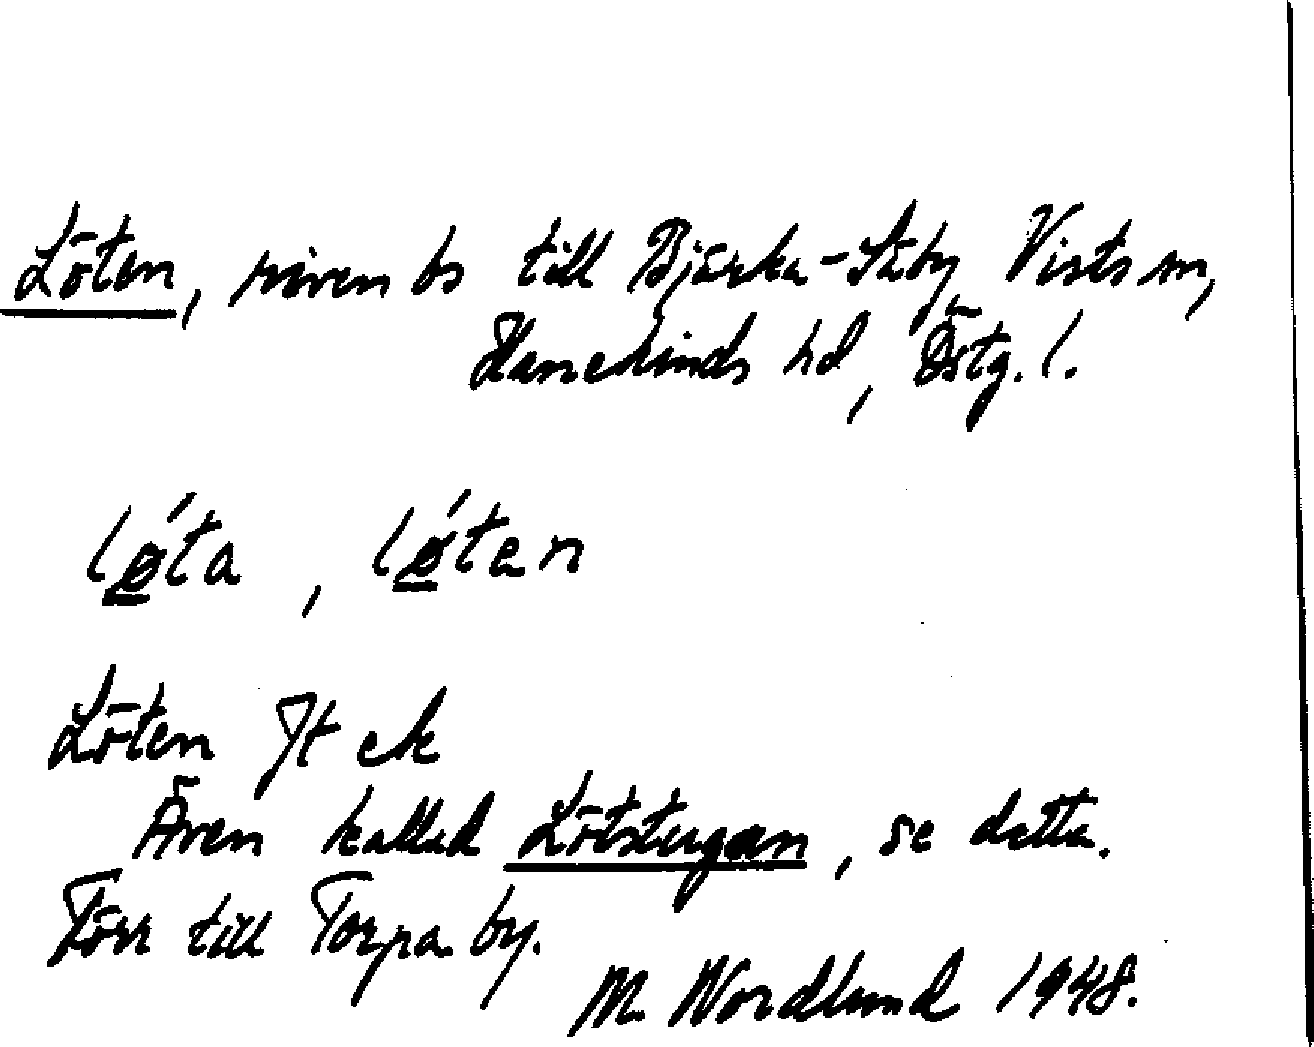 Löten, riven bs till Bjärka-Säby Vists sn,
Hanekinds hd, Östg. l.
lǿ̲ta, lǿ̲ten
Löten Jt ek
Även kallad Lötstugan, se detta.
Förr till Torpa by.
M. Nordlund 1948.